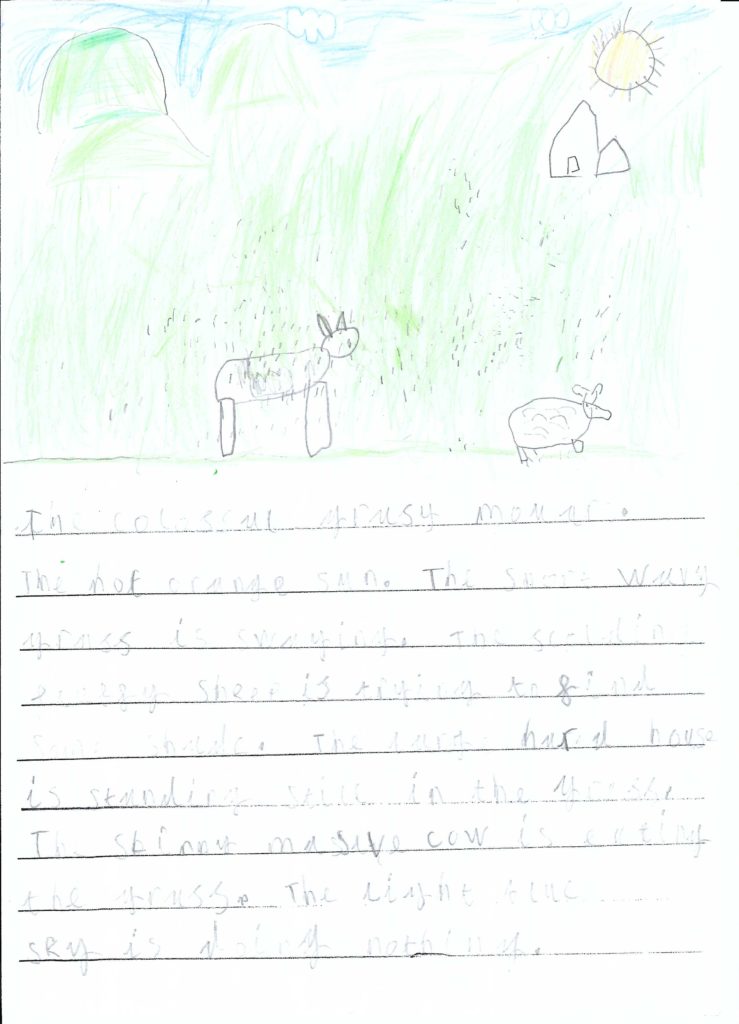 The colossul grassy mount.
The hot orange sun. The wavy
grass is swaying. The scalding
sheep is trying to find
some shade. The large hard house
is standing still in the grass.
The skinny masive cow is eating
the grass. The light blue
sky is doing nothing.